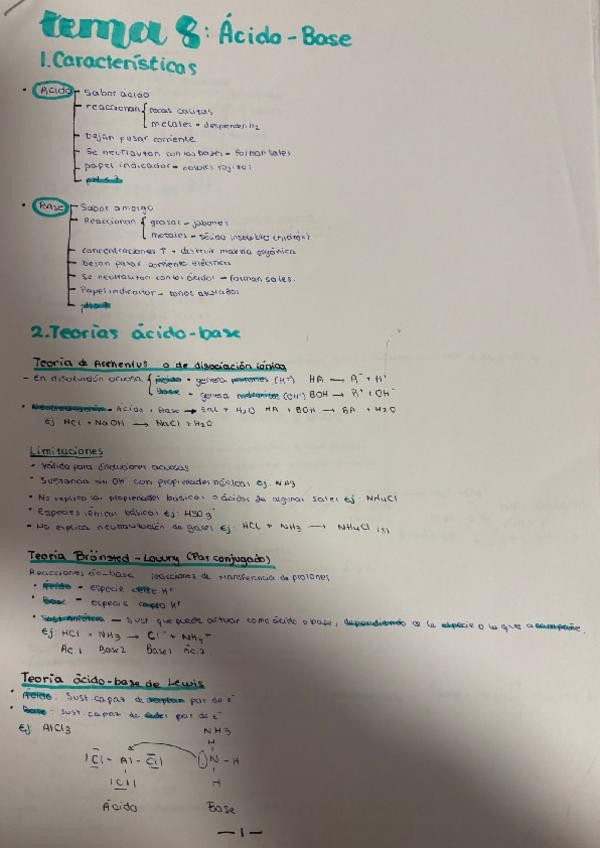 tema 8: Ácido-Base
1. Características
• Ácido - Sabor ácido
- reaccionan rocas calizas
metales - desprenden H2
- Dejan pasar corriente
- Se neutralizan con las bases - forman sales
- papel indicador - colores rojizos
- pH < 7
• Base - Sabor amargo
- Reaccionan grasas - jabones
metales - sólido insoluble (hidróx)
- concentraciones ↑ + destruir materia orgánica
- Dejan pasar corriente eléctrica
- Se neutralizan con los ácidos - forman sales.
- Papel indicador - tonos azulados
2. Teorías ácido-base
Teoría de Arrhenius o de disociación iónica
- En disolución acuosa Ácido - genera protones (H⁺) HA → A⁻ + H⁺
Base - genera (OH⁻) BOH → B⁺ + OH⁻
• Neutralización - Ácido + Base → Sal + H2O HA + BOH → BA + H2O
ej HCl + NaOH → NaCl + H2O
Limitaciones
• Válida para disoluciones acuosas
• Sustancia sin OH⁻ con propiedades básicas ej. NH3
• No explica las propiedades básicas o ácidas de algunas sales ej: NH4Cl
• Especies iónicas básicas ej: HSO3⁻
• No explica neutralización de gases ej: HCl + NH3 → NH4Cl (s)
Teoría Brönsted-Lowry (Par conjugado)
Reacciones ác-base reacciones de transferencia de protones
• Ácido - especie cede H⁺
• Base - especie capta H⁺
• Sust. Anfótera - Sust que puede actuar como ácido o base, dependiendo de la especie a la que acompañe.
ej: HCl + NH3 → Cl⁻ + NH4⁺
Ác.1 Base2 Base1 Ác.2
Teoría ácido-base de Lewis
• Ácido: Sust. capaz de aceptar par de e⁻
• Base: Sust. capaz de ceder par de e⁻
Ej: AlCl3 NH3
H
|Cl - Al - Cl| N - H
|Cl| H
Ácido Base
- 1 -